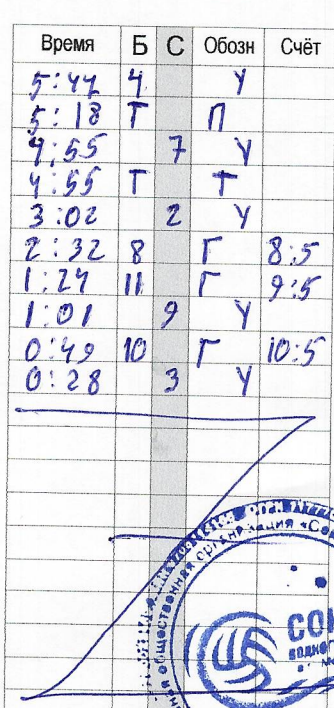 Время Б С Обозн Счёт
5:44 4 У
5:18 Т П
4:55 7 У
4:55 Т Т
3:02 2 У
2:32 8 Г 8:5
1:24 11 Г 9:5
1:01 9 У
0:49 10 Г 10:5
0:28 3 У
общественная организация «Сою
СОЮ
ВОДНОГ